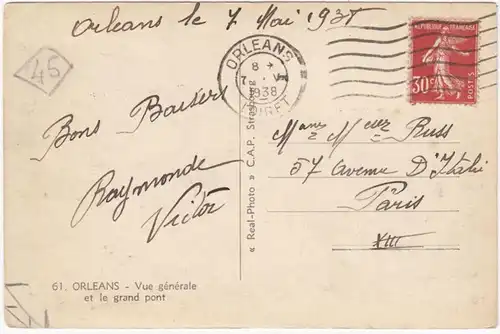 Orleans le 7 Mai 1938
45
ORLEANS
8
7 - V
1938
LOIRET
REPUBLIQUE FRANÇAISE
30c
POSTES
Bons Baisers
Raymonde
Victor
Mmes Melles Russ
57 avenue D'Italie
Paris
XIII
« Real-Photo » C.A.P. Strasbourg
61. ORLEANS - Vue générale
et le grand pont